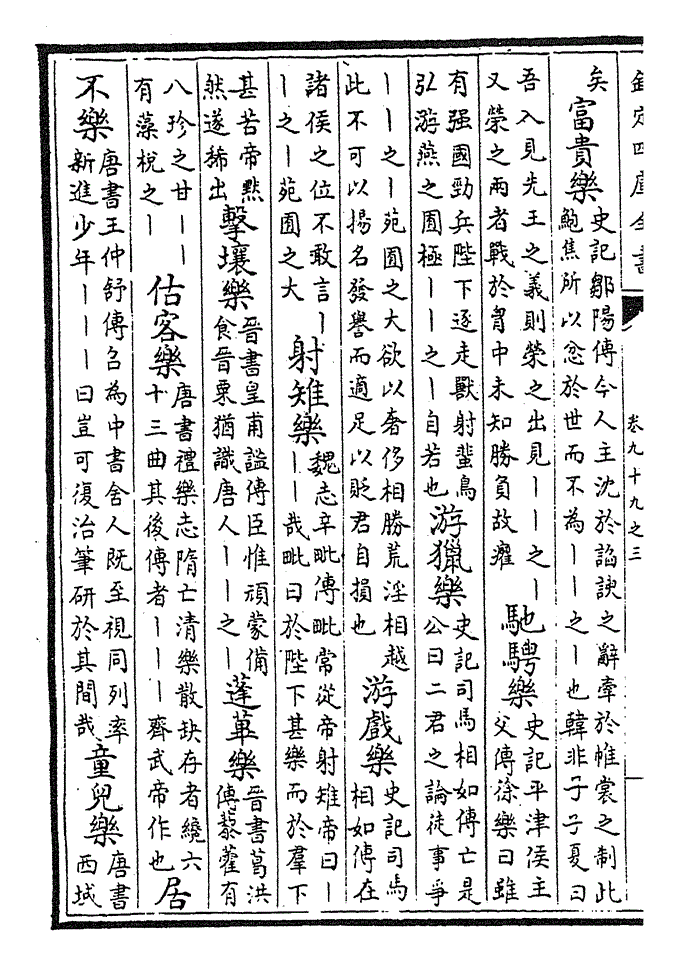 欽定四庫全書
卷九十九之三
矣
富貴樂
史記鄒陽傳今人主沈於諂諛之辭牽於帷裳之制此
鮑焦所以忿於世而不為丨丨之丨也韓非子子夏曰
吾入見先王之義則榮之出見丨丨之丨
又榮之兩者戰於胷中未知勝負故癯
馳騁樂
史記平津侯主
父傳徐樂曰雖
有强國勁兵陛下逐走獸射蜚鳥
弘游燕之囿極丨丨之丨自若也
游獵樂
史記司馬相如傳亡是
公曰二君之論徒事爭
丨丨之丨苑囿之大欲以奢侈相勝荒淫相越
此不可以揚名發譽而適足以貶君自損也
游戲樂
史記司馬
相如傳在
諸侯之位不敢言丨
丨之丨苑囿之大
射雉樂
魏志辛毗傳毗常從帝射雉帝曰丨
丨丨哉毗曰於陛下甚樂而於羣下
甚苦帝黙
然遂稀出
擊壤樂
晉書皇甫謐傳臣惟頑蒙備
食晉粟猶識唐人丨丨之丨
蓬蓽樂
晉書葛洪
傳藜藿有
八珍之甘丨丨
有藻梲之丨
估客樂
唐書禮樂志隋亡清樂散缺存者纔六
十三曲其後傳者丨丨丨齊武帝作也
居
不樂
唐書王仲舒傳召為中書舍人既至視同列率
新進少年丨丨丨曰豈可復治筆研於其間哉
童兒樂
唐書
西域